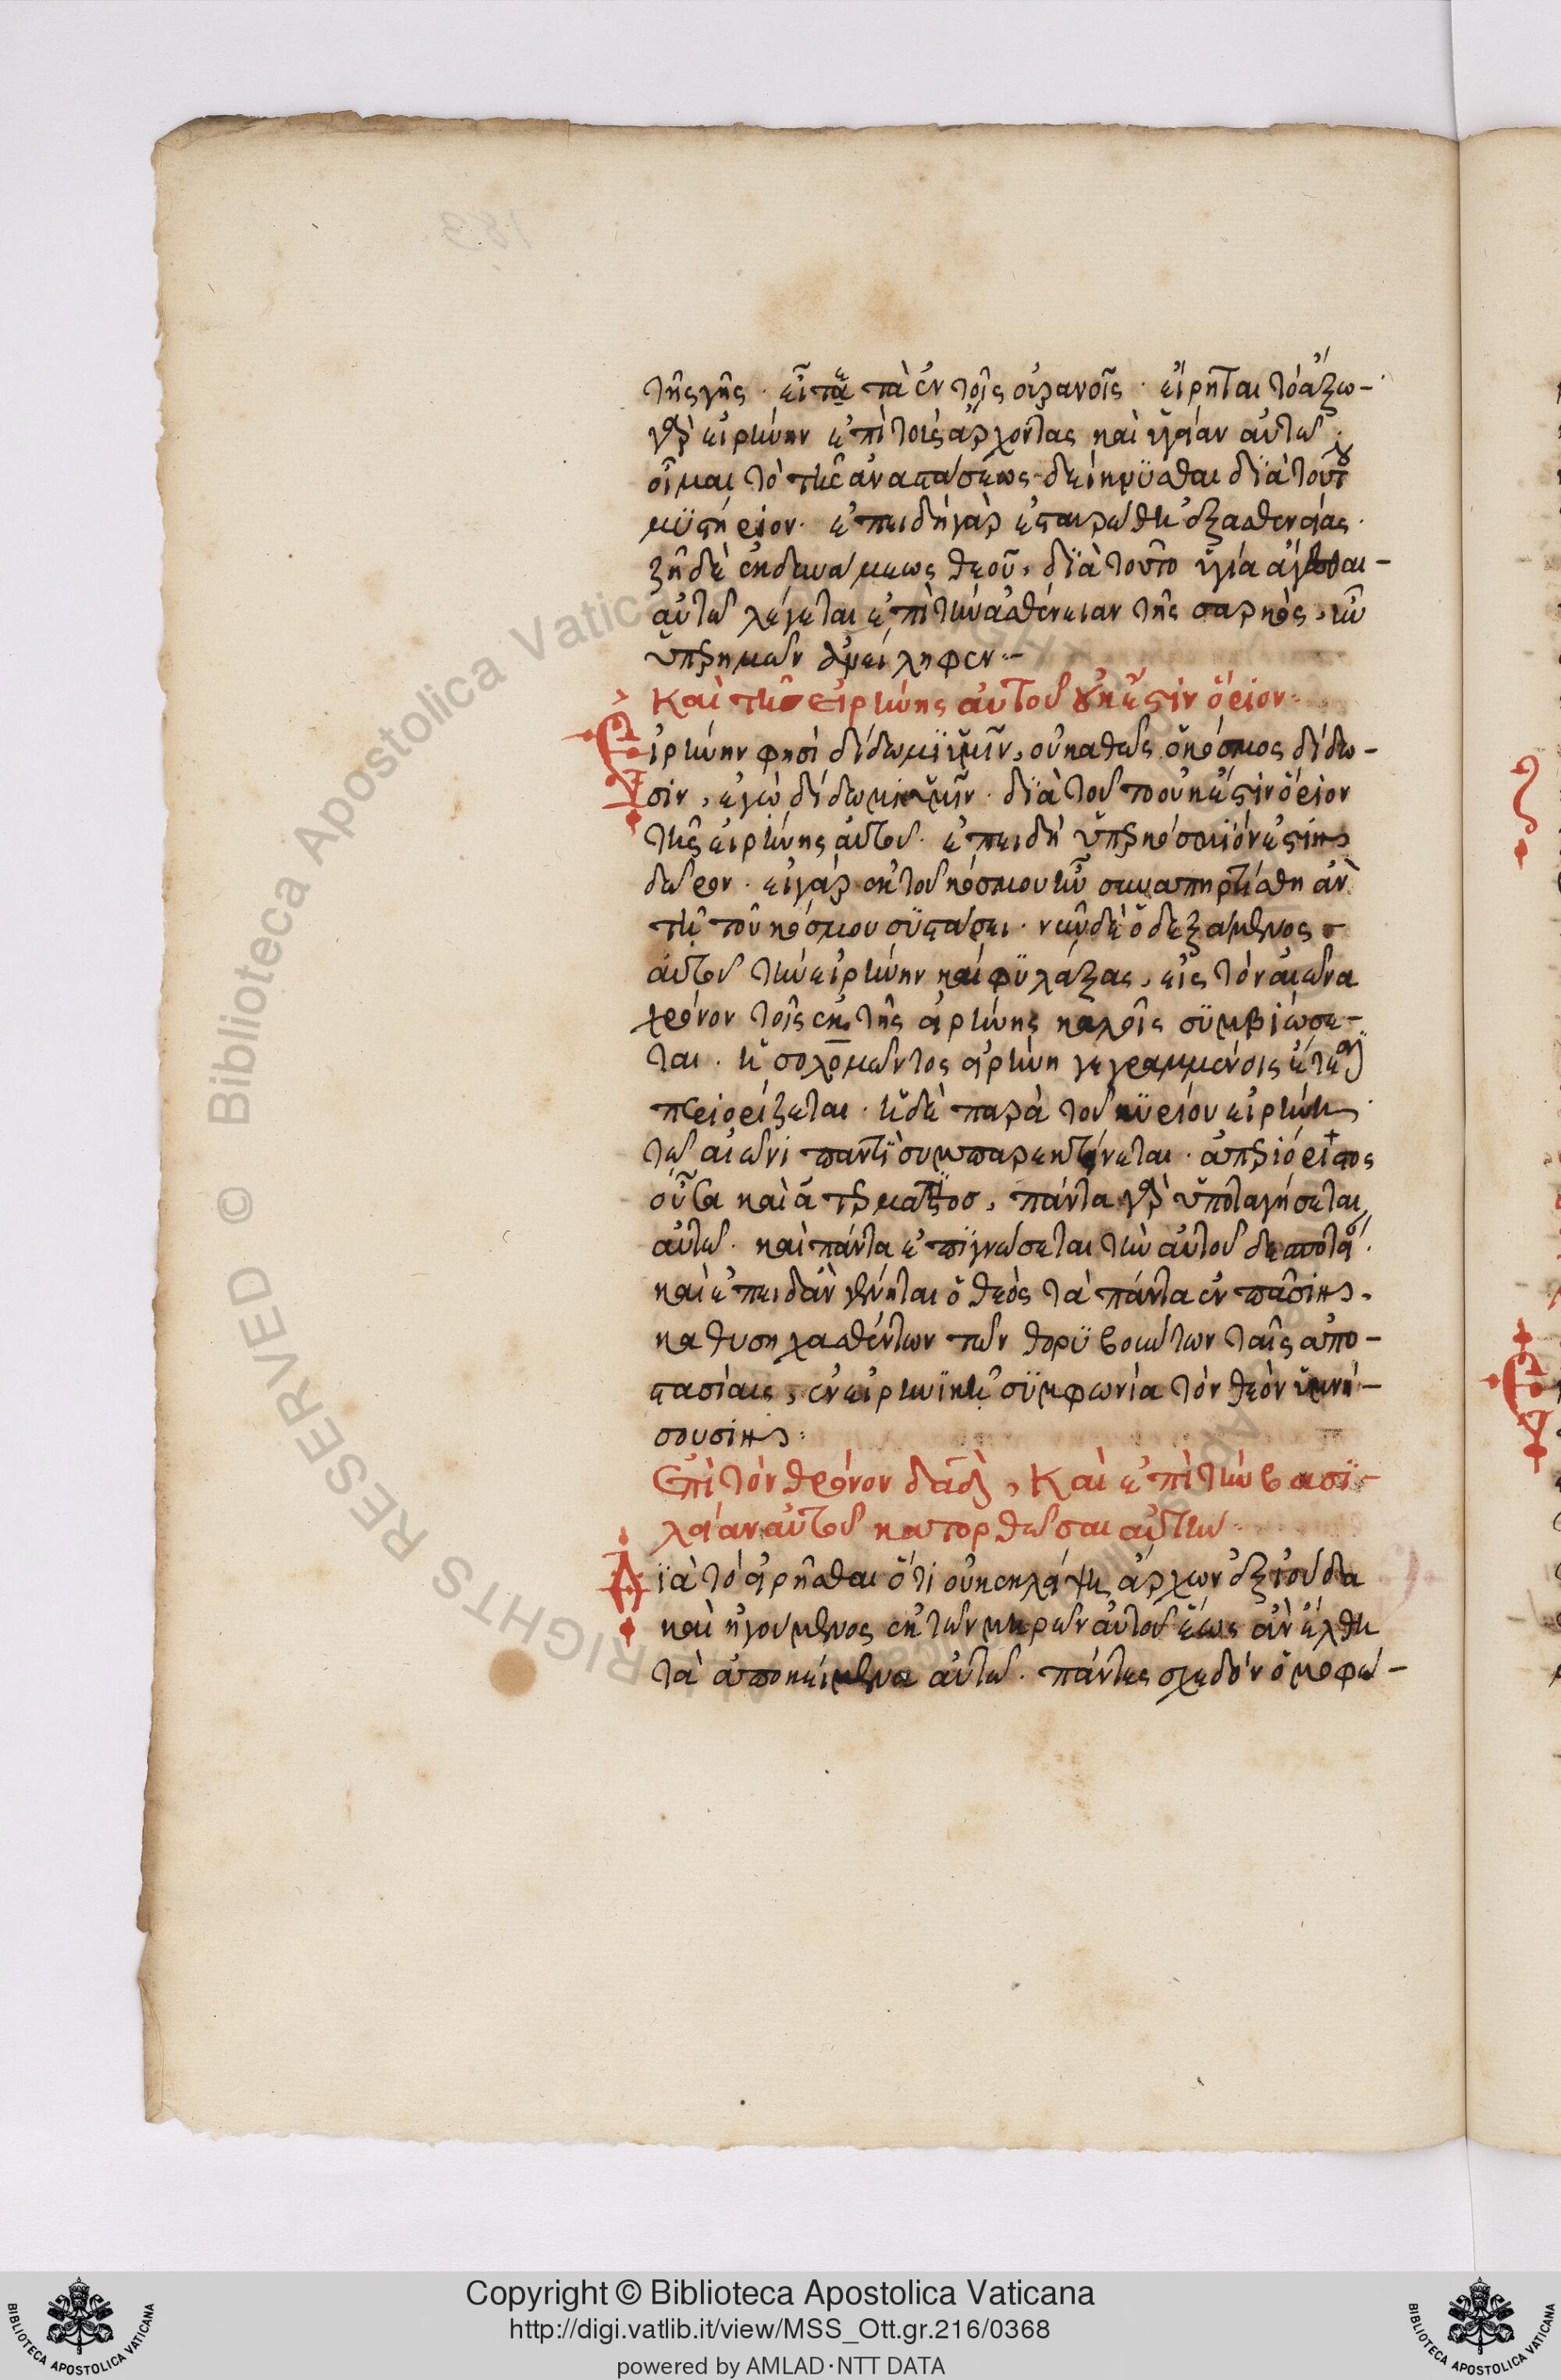 τῆς γῆς · εἴτε τὰ ἐν τοῖς οὐρανοῖς · εἴρηται τὸ ἄξω-
γὰρ εἰρήνην ἐπὶ τοὺς ἄρχοντας καὶ ὑγείαν αὐτῶ ·
οἶμαι τὸ τῆς ἀναστάσεως δείκνυσθαι διὰ τούτου
μυστήριον · ἐπειδὴ γὰρ ἐσταυρώθη ἐξ ἀσθενείας ·
ζῆ δὲ ἐκ δυνάμεως θεοῦ, διὰ τοῦτο ὑγία ἄγεσθαι-
αὐτῶ λέγεται ἐπὶ τὴν ἀσθένειαν τῆς σαρκός, ἣν
ὑπὲρ ἡμῶν ἀνείληφεν :-
Καὶ τῆς εἰρήνης αὐτοῦ οὐκ ἔστιν ὅριον ·
Εἰρήνην φησὶ δίδωμι ὑμῖν, οὐ καθὼς ὁ κόσμος δίδω-
σιν, ἐγὼ δίδωμι ὑμῖν · διὰ τοῦτο οὐκ ἔστιν ὅριον
τῆς εἰρήνης αὐτοῦ · ἐπειδὴ ὑπερκόσμιόν ἐστιν
δῶρον · εἰ γὰρ ἐκ τοῦ κόσμου ἦν συναπηρτίσθη ἂν
τῆ τοῦ κόσμου συστάσει · νῦν δὲ ὁ δεξάμενος
αὐτοῦ τὴν εἰρήνην καὶ φυλάξας, εἰς τὸν αἰῶνα
χρόνον τοῖς ἐκ τῆς εἰρήνης καλοῖς συμβιώσε-
ται · ἡ σολομῶντος εἰρήνη γεγραμμένοις ἔτεσι
περιορίζεται · ἡ δὲ παρὰ τοῦ κυρίου εἰρήνη
τῶ αἰῶνι παντὶ συμπαρεκτείνεται · ἀπεριόριστος
οὖσα καὶ ἀτερμάτιστος, πάντα γὰρ ὑποταγήσεται
αὐτῶ · καὶ πάντα ἐπιγνώσεται τὴν αὐτοῦ δεσποτείαν ·
καὶ ἐπειδὰν γένηται ὁ θεὸς τὰ πάντα ἐν πᾶσιν,
καθησυχασθέντων τῶν θορυβούντων ταῖς ἀπο-
στασίαις, ἐν εἰρηνικῆ συμφωνία τὸν θεὸν ὑμνή-
σουσιν :
Ἐπὶ τὸν θρόνον δαδ, Καὶ ἐπὶ τὴν βασι-
λείαν αὐτοῦ κατορθῶσαι αὐτὴν ·
Διὰ τὸ εἰρῆσθαι ὅτι οὐκ ἐκλείψη ἄρχων ἐξ ἰούδα
καὶ ἡγούμενος ἐκ τῶν μηρῶν αὐτοῦ ἕως ἂν ἔλθη
τὰ ἀποκείμενα αὐτῶ · πάντες σχεδὸν ὁμοφώ-
Copyright © Biblioteca Apostolica Vaticana
http://digi.vatlib.it/view/MSS_Ott.gr.216/0368
powered by AMLAD·NTT DATA